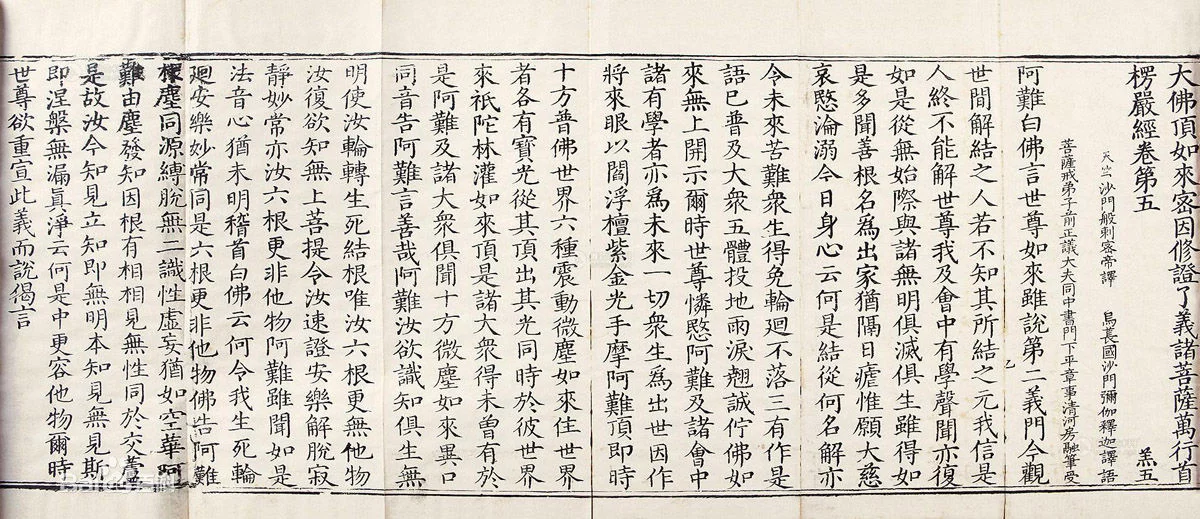 大佛頂如來密因修證了義諸菩薩萬行首
楞嚴經卷第五 羔五
天竺沙門般剌密帝譯 烏萇國沙門彌伽釋迦譯語
菩薩戒弟子前正議大夫同中書門下平章事清河房融筆受
阿難白佛言世尊如來雖說第二義門今觀
世間解結之人若不知其所結之元我信是
人終不能解世尊我及會中有學聲聞亦復
如是從無始際與諸無明俱滅俱生雖得如
是多聞善根名為出家猶隔日瘧惟願大慈
哀愍淪溺今日身心云何是結從何名解亦
令未來苦難衆生得免輪迴不落三有作是
語已普及大衆五體投地雨淚翹誠佇佛如
來無上開示爾時世尊憐愍阿難及諸會中
諸有學者亦為未來一切衆生為出世因作
將來眼以閻浮檀紫金光手摩阿難頂即時
十方普佛世界六種震動微塵如來住世界
者各有寶光從其頂出其光同時於彼世界
來祇陀林灌如來頂是諸大衆得未曽有於
是阿難及諸大衆俱聞十方微塵如來異口
同音告阿難言善哉阿難汝欲識知俱生無
明使汝輪轉生死結根唯汝六根更無他物
汝復欲知無上菩提令汝速證安樂解脫寂
靜妙常亦汝六根更非他物阿難雖聞如是
法音心猶未明稽首白佛云何令我生死輪
迴安樂妙常同是六根更非他物佛告阿難
根塵同源縛脫無二識性虛妄猶如空華阿
難由塵發知因根有相相見無性同於交蘆
是故汝今知見立知即無明本知見無見斯
即涅槃無漏眞淨云何是中更容他物爾時
世尊欲重宣此義而說偈言